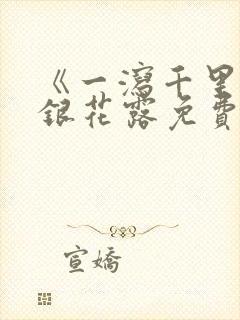 《一瀉千里
銀花露免費
宣嬌